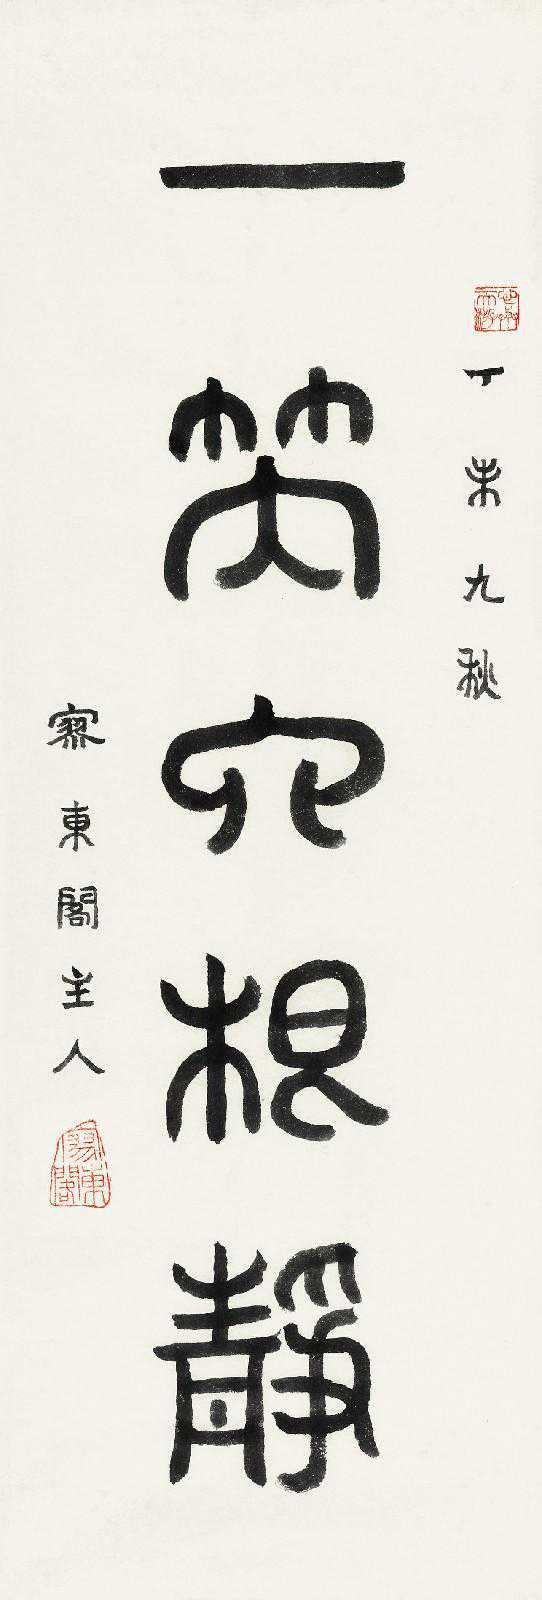 丁未九秋
一笑六根靜
東閣主人
東閣